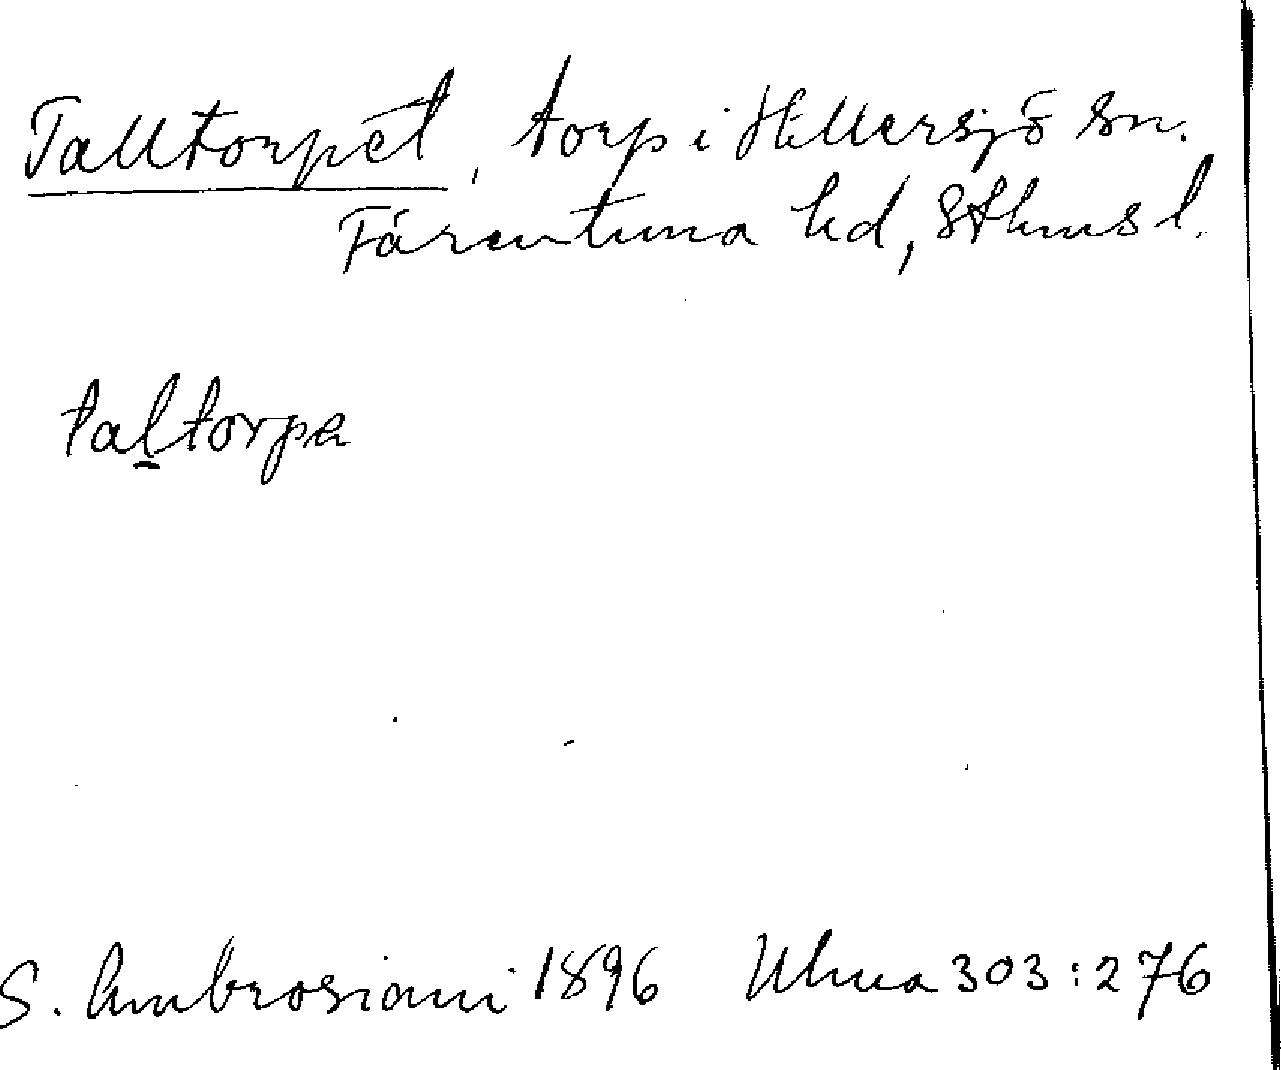 Talltorpet, torp i Hillersjö sn.
Färentuna hd, Sthms l.
taltorpa
S. Ambrosiani 1896 Ulma 303:276